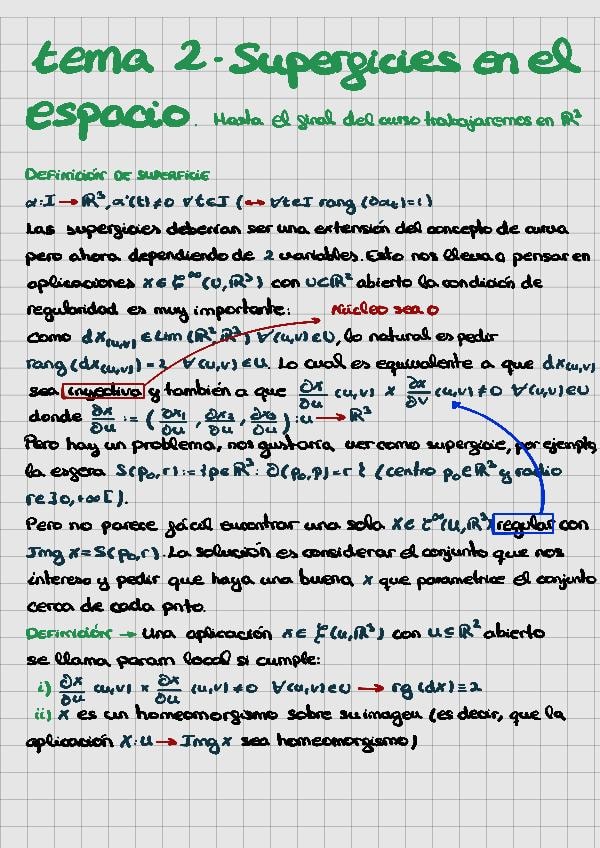 tema 2 - Superficies en el
espacio. Hasta el final del curso trabajaremos en ℝ³
DEFINICIÓN DE SUPERFICIE
α: I → ℝ³, α'(t) ≠ 0 ∀t∈I (↔ ∀t∈I rang (dαt) = 1)
Las superficies deberían ser una extensión del concepto de curva
pero ahora dependiendo de 2 variables. Esto nos lleva a pensar en
aplicaciones X ∈ ξ^∞(U, ℝ³) con U⊂ℝ² abierto la condición de
regularidad es muy importante: Núcleo sea 0
como dX(u,v) ∈ Lim (ℝ², ℝ³) ∀(u,v)∈U, lo natural es pedir
rang (dX(u,v)) = 2 ∀(u,v)∈U. Lo cual es equivalente a que dX(u,v)
sea inyectiva y también a que ∂x/∂u (u,v) × ∂x/∂v (u,v) ≠ 0 ∀(u,v)∈U
donde ∂x/∂u := (∂x₁/∂u, ∂x₂/∂u, ∂x₃/∂u) : U → ℝ³
Pero hay un problema, nos gustaría ver como superficie, por ejemplo,
la esfera S(p₀,r) := {p∈ℝ³ : d(p₀,p) = r} (centro p₀∈ℝ³ y radio
r∈]0,+∞[).
Pero no parece fácil encontrar una sola X∈ξ^∞(U,ℝ³) regular con
Img X = S(p₀,r). La solución es considerar el conjunto que nos
interesa y pedir que haya una buena X que parametrice el conjunto
cerca de cada pnto.
DEFINICIÓN → Una aplicación X∈ξ(U,ℝ³) con U⊆ℝ² abierto
se llama param local si cumple:
i) ∂x/∂u (u,v) × ∂x/∂u (u,v) ≠ 0 ∀(u,v)∈U → rg (dx) = 2
ii) X es un homeomorfismo sobre su imagen (es decir, que la
aplicación X: U → Img X sea homeomorfismo)